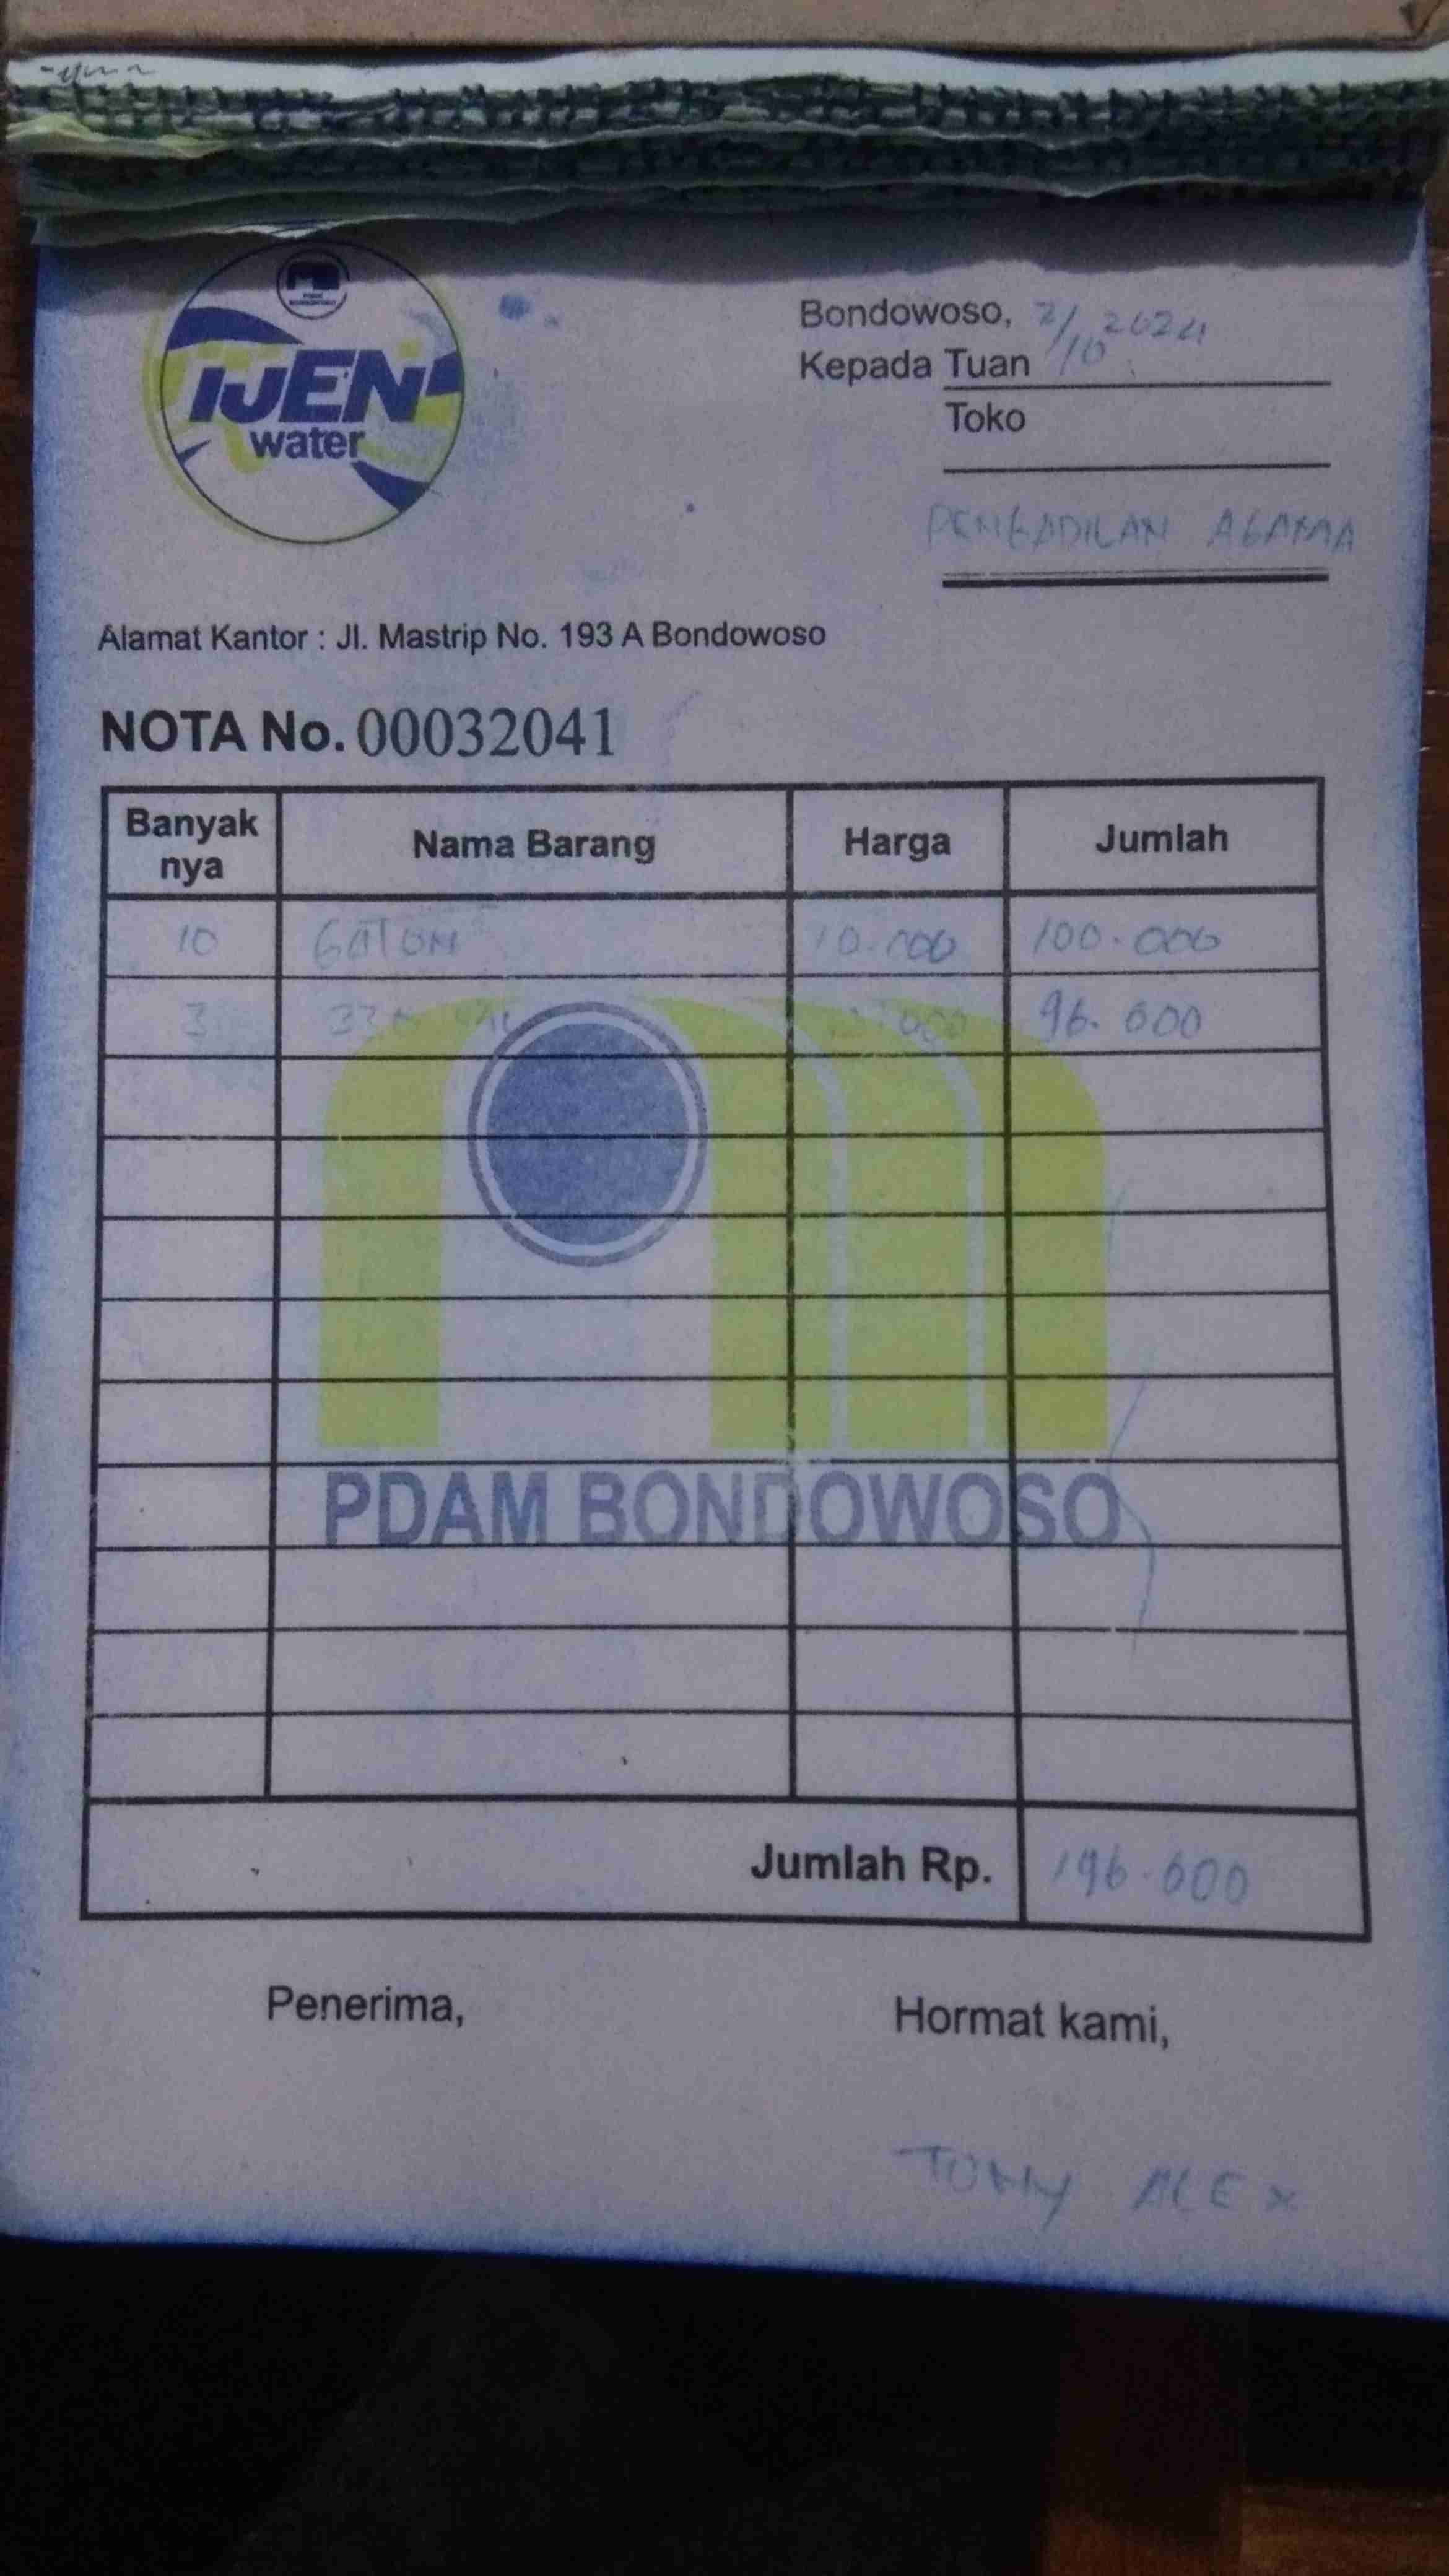 IJEN
water
Bondowoso, 2/10 2024
Kepada Tuan
Toko
PENGADILAN AGAMA
Alamat Kantor : Jl. Mastrip No. 193 A Bondowoso
NOTA No. 00032041
Banyak nya Nama Barang Harga Jumlah
10 GALON 10.000 100.000
3 96.000
PDAM BONDOWOSO
Jumlah Rp. 196.000
Penerima, Hormat kami,
TONY ALEX